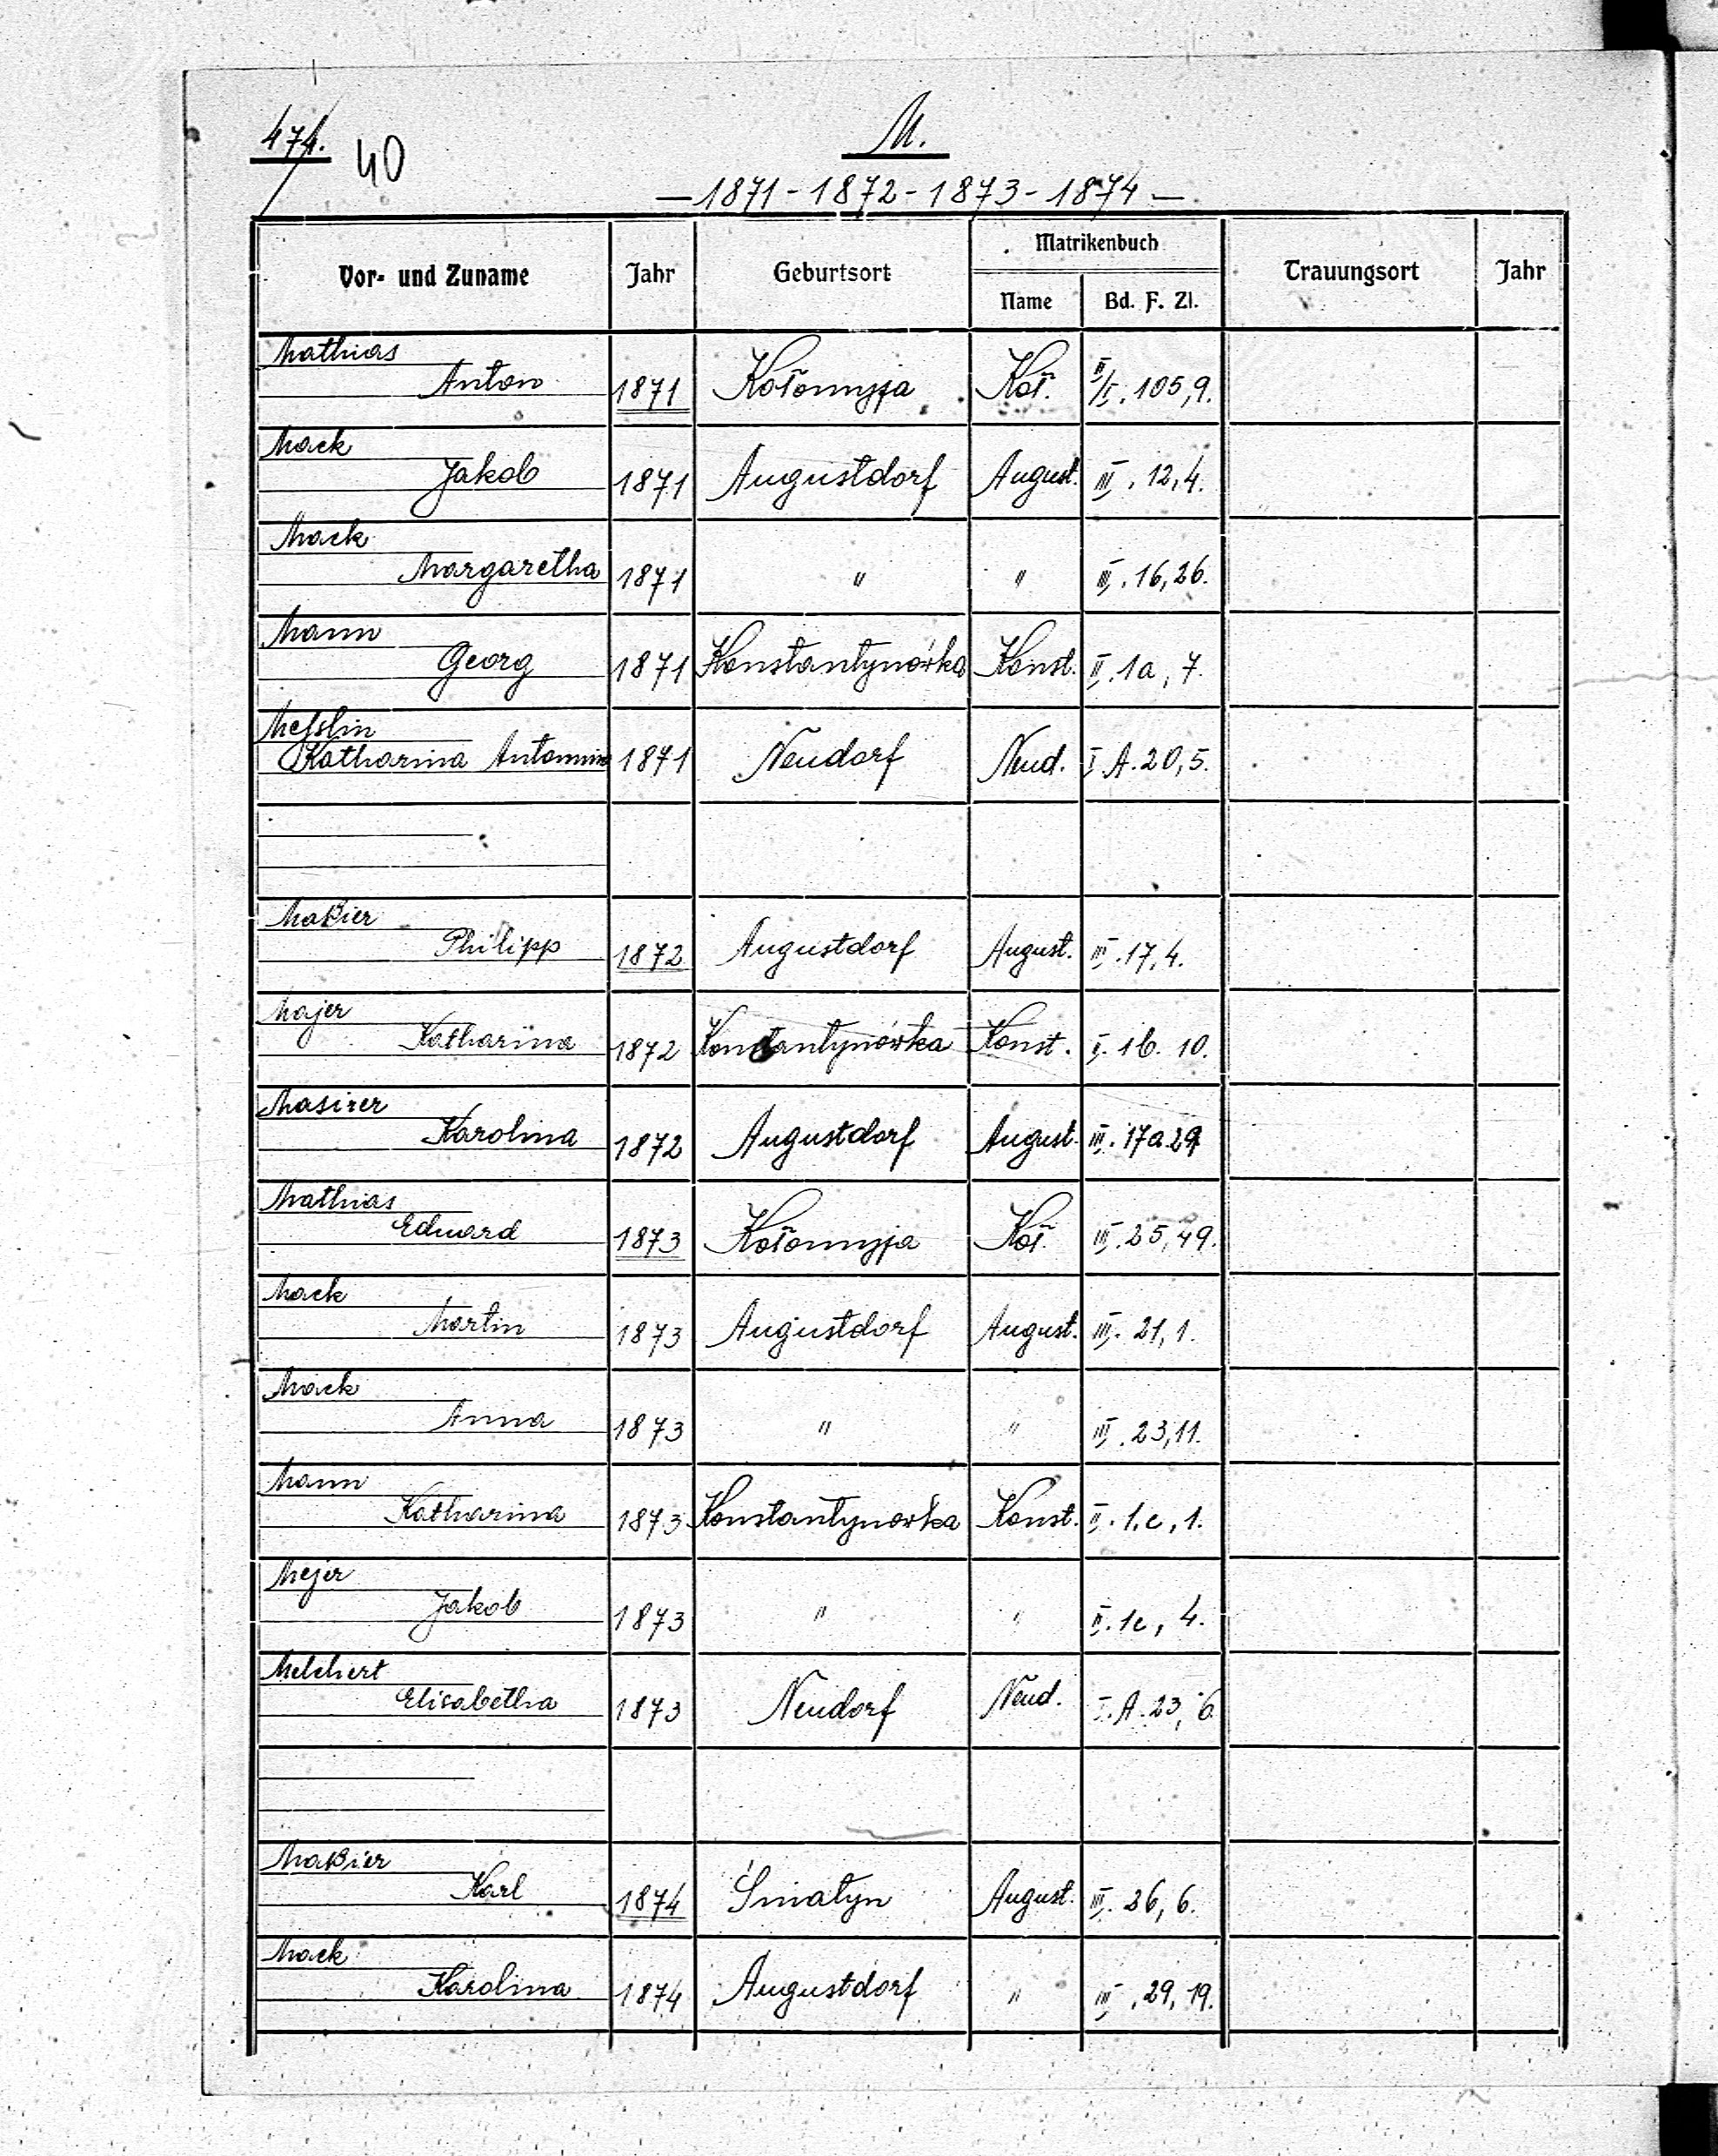 474. 40
M.
— 1871 - 1872 - 1873 - 1874 —
Vor- und Zuname Jahr Geburtsort Matrikenbuch Trauungsort Jahr
Name Bd. F. Zl.
Mathias
Anton 1871 Kołomyja Koł. II/I. 105,9.
Mack
Jakob 1871 Augustdorf August. III. 12,4.
Mack
Margaretha 1871 " " III. 16,26.
Mann
Georg 1871 Konstantynówka Konst. II. 1a, 7.
Messlin
Katharina 1871 Neudorf Neud. I. A. 20,5.
Maßier
Philipp 1872 Augustdorf August. III. 17,4.
Majer
Katharina 1872 Konstantynówka Konst. 1b. 10.
Masirer
Karolina 1872 Augustdorf August. III. 17a 29
Mathias
Eduard 1873 Kołomyja Koł. III. 25,49.
Mack
Martin 1873 Augustdorf August. III. 21,1.
Mack
Anna 1873 " " III. 23,11.
Mann
Katharina 1873 Konstantynówka Konst. II. 1.c, 1.
Mejer
Jakob 1873 " " II. 1c, 4.
Melchert
Elisabetha 1873 Neudorf Neud. I. A. 23, 6
Maßier
Karl 1874 Śniatyn August. III. 26, 6.
Mack
Karolina 1874 Augustdorf " III. 29, 19.